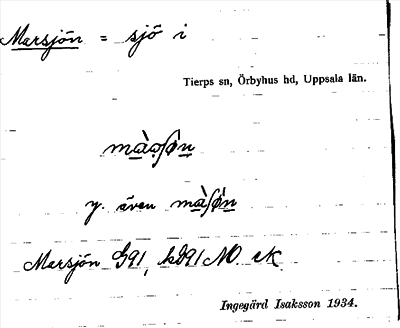 Marsjön = sjö i
Tierps sn, Örbyhus hd, Uppsala län.
y. även
Marsjön G91, kd91 NO ek
Ingegärd Isaksson 1934.